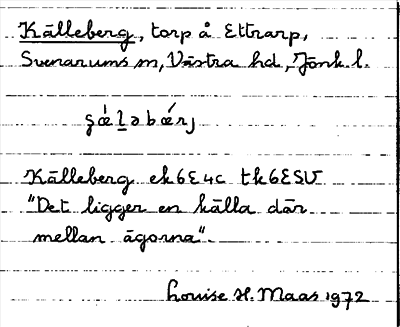 Källeberg, torp å Ettrarp,
Svenarums sn, Västra hd, Jönk. l.
ʂǽl̠əbǽrj
Källeberg ek 6E4c tk 6ESV
"Det ligger en källa där
mellan ägorna".
Louise H. Maas 1972